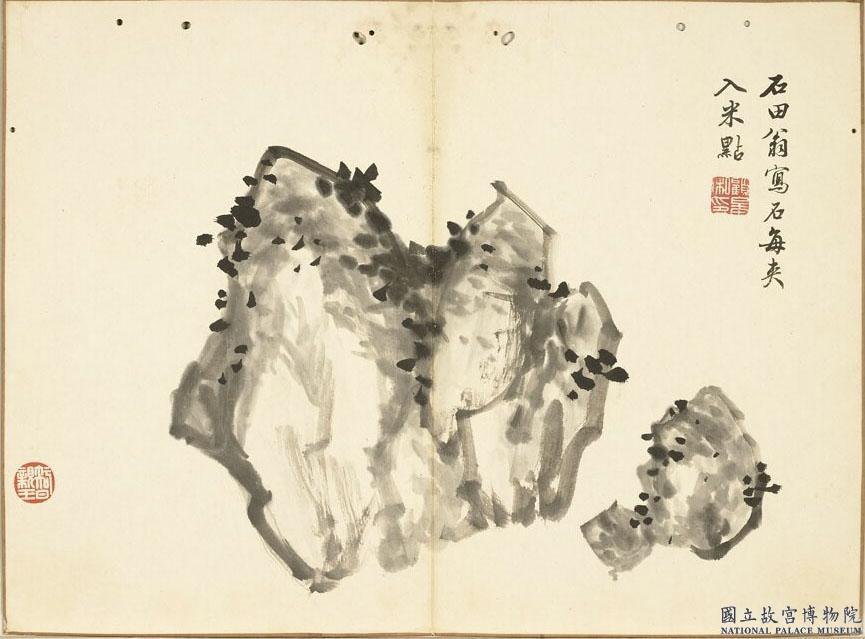 石田翁寫石每夾
入米點
國立故宮博物院
NATIONAL PALACE MUSEUM